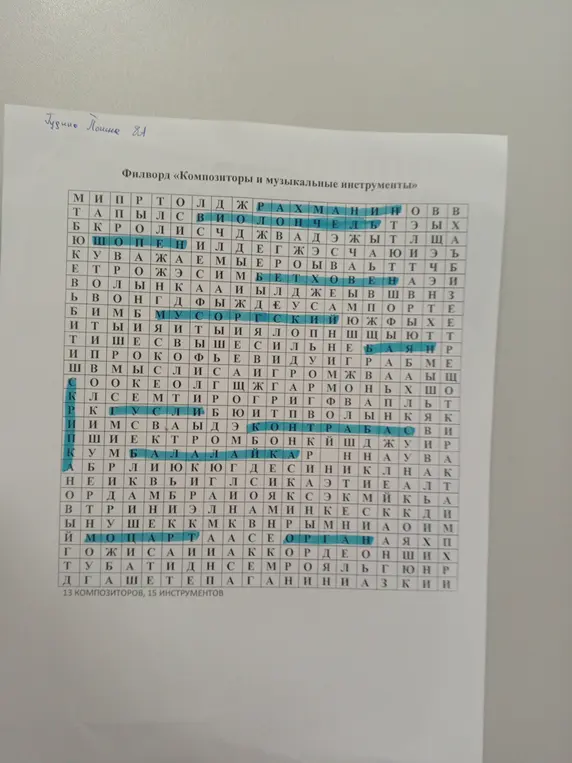 8А
Филворд «Композиторы и музыкальные инструменты»
М И П Р Т О Л Д Ж Р А Х М А Н И Н О В В
Т А П Ы Л С В И О Л О Н Ч Е Л Ь Т Э Ы Х
Б К Р О Л И С Ч Д Ж В А Д Э Ж Ы Т Л Щ А
Ю Ш О П Е Н И Л Д Е Г Ж Э С Ч А Ю И Э Ъ
К У В А Ж А Е М Ы Е Р О Ы В А Ь Т Т Ч Б
Е Т Р О Ж Э С И М Б Е Т Х О В Е Н А Э И
В О Л Ы Н К А А И Ы Л Д Ж Е Ы В Ш В Н З
Ь В О Н Г Д Ф Ы Ж Д Е У С А М П О Р Т Е
Б И М Б М У С О Р Г С К И Й Ю Ж Ф Ы Х Е
И Т Ы И Я И Т Ы И Я Л О П Н Ш Щ Ы Ю Т Т
Т И Ш Е С В Ы Ш Е С И Л Ь Н Е Б А Я Н Р
И П Р О К О Ф Ь Е В И Д У И Г Р А Б М Е
Ш В М Ы С Л И С А И Г Р О М Ж В А А Ы Щ
С О О К Е О Л Г Щ Ж Г А Р М О Н Ь Х Ш О
К Л С Е М Т И Р О Г Р И Г Ф В А П Л Ь Т
Р К Г У С Л И Б Ю И Т П В О Л Ы Н К Я К
И И М С В А Ы Д Э К О Н Т Р А Б А С В И
П Ш И Е К Т Р О М Б О Н К Й Ш Д Ж У И Р
К У М Б А Л А Л А Й К А Р Н Н А У В А
А Б Р Л И Ю К Ю Г Д Е С И Н И К Л Н А К
Н Е И К В Ь И Г Л С И К А Э Т И Е А Л Т
О Р Д А М Б Р А И О Я К С Э К М Й К Ь А
В Т Р И Н И Э Л Н А М И Н К Е С К К Д И
Ы Н У Ш Е К К М К В Н Р Ы М Н И А О И М
Й М О Ц А Р Т А А С Е О Р Г А Н А Я Х П
Г О Ж И С А И И А К К О Р Д Е О Н Ш И Х
Т У Б А Т И Д Н С Е М Р О Я Л Ь Г Ю Н Р
Д Г А Ш Е Т Е П А Г А Н И Н И А З К И Й
13 КОМПОЗИТОРОВ, 15 ИНСТРУМЕНТОВ